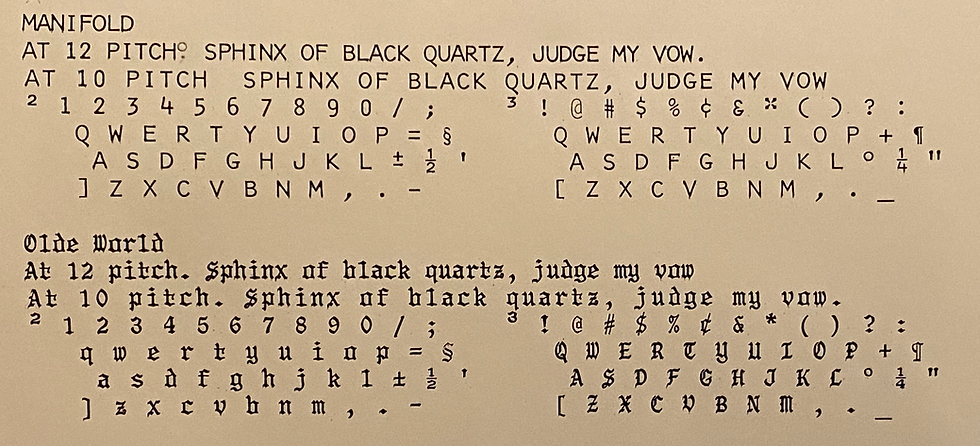 MANIFOLD
AT 12 PITCH° SPHINX OF BLACK QUARTZ, JUDGE MY VOW.
AT 10 PITCH  SPHINX OF BLACK QUARTZ, JUDGE MY VOW
² 1 2 3 4 5 6 7 8 9 0 / ; ³ ! @ # $ % ¢ & * ( ) ? :
Q W E R T Y U I O P = § Q W E R T Y U I O P + ¶
A S D F G H J K L ± ½ ' A S D F G H J K L ° ¼ "
] Z X C V B N M , . - [ Z X C V B N M , . _
Olde World
At 12 pitch. Sphinx of black quartz, judge my vow
At 10 pitch. Sphinx of black quartz, judge my vow.
² 1 2 3 4 5 6 7 8 9 0 / ; ³ ! @ # $ % ¢ & * ( ) ? :
q w e r t y u i o p = § Q W E R T Y U I O P + ¶
a s d f g h j k l ± ½ ' A S D F G H J K L ° ¼ "
] z x c v b n m , . - [ Z X C V B N M , . _